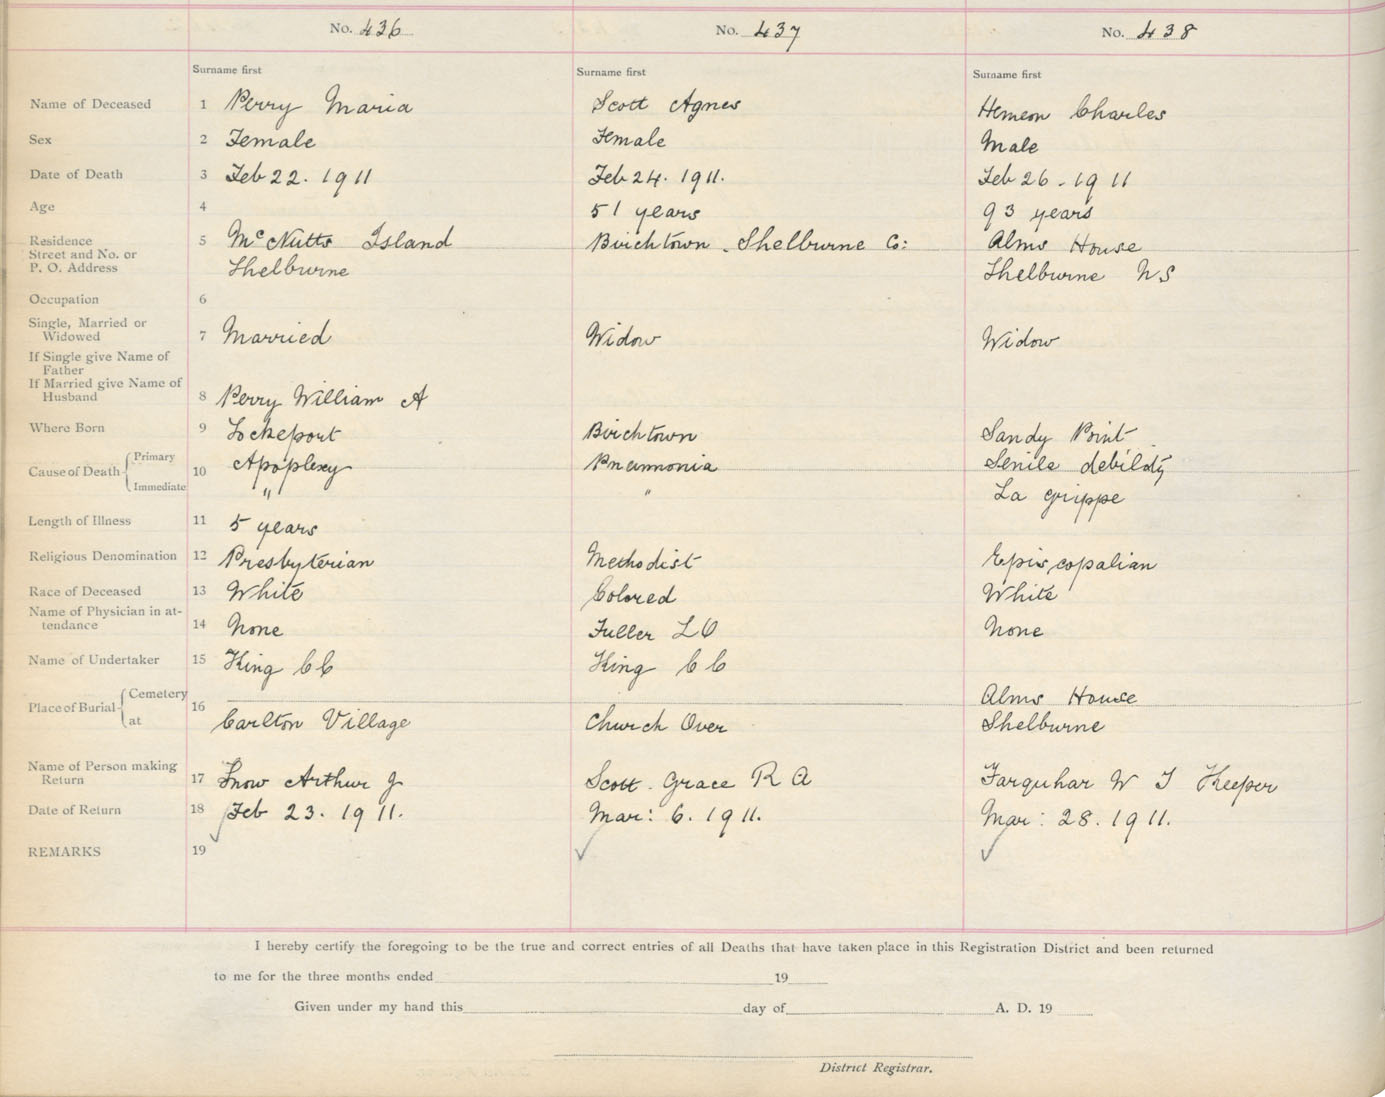 No. 436 No. 437 No. 438
Surname first Surname first Surname first
Name of Deceased 1 Perry Maria Scott Agnes Hemeon Charles
Sex 2 Female Female Male
Date of Death 3 Feb 22. 1911 Feb 24. 1911. Feb 26 - 1911
Age 4 51 years 93 years
Residence 5 McNutts Island Birchtown - Shelburne Co: Alms House
Street and No. or
P. O. Address Shelburne Shelburne NS
Occupation 6
Single, Married or
Widowed 7 Married Widow Widow
If Single give Name of
Father
If Married give Name of
Husband 8 Perry William A
Where Born 9 Lockeport Birchtown Sandy Point
Cause of Death Primary 10 Apoplexy Pneumonia Senile debility
Immediate " " La grippe
Length of Illness 11 5 years
Religious Denomination 12 Presbyterian Methodist Episcopalian
Race of Deceased 13 White Colored White
Name of Physician in at-
tendance 14 None Fuller L O None
Name of Undertaker 15 King C C King C C
Place of Burial Cemetery 16 Alms House
at Carlton Village Church Over Shelburne
Name of Person making
Return 17 Snow Arthur J Scott - Grace R A Farquhar W T Keeper
Date of Return 18 Feb 23. 1911. Mar: 6. 1911. Mar: 28. 1911.
REMARKS 19
I hereby certify the foregoing to be the true and correct entries of all Deaths that have taken place in this Registration District and been returned
to me for the three months ended 19
Given under my hand this day of A. D. 19
District Registrar.